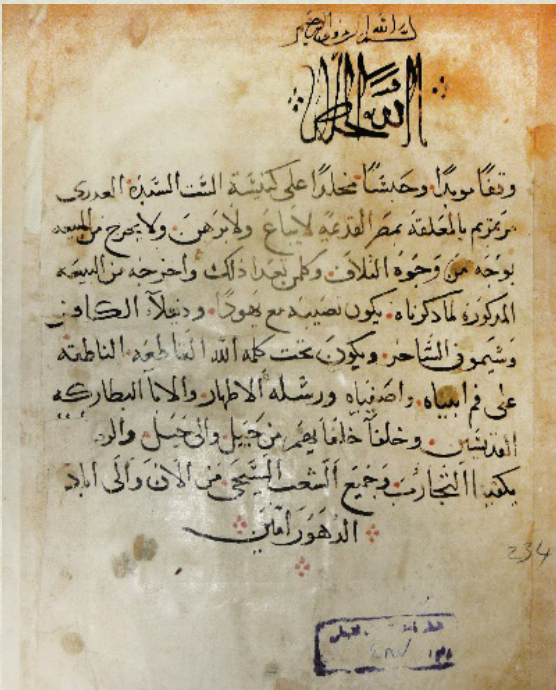 وقفًا موبدًا وحبسًا مخلدًا على كنيسة الست السيدة العدرى
مرتمريم بالمعلقه بمصر القديمه لا يباع ولا يرهن ولا يخرج من البيعه
بوجه من وجوه التلاف وكلمن تعدا ذلك واخرجه من البيعه
المدكوره لما دكرناه يكون نصيبه مع يهودا ودقيلا الكافر
وسيمون الساحر ويكون تحت كلمه الله القاطعه الناطقه
على فم انبياه واصفياه ورسله الاطهار والابا البطاركه
القديسين وخلفآ خلفايهم من جيل والى جيل والرب
يكفينا التجارب وجميع الشعب المسيحى من الان والى اباد
الدهور امين
234